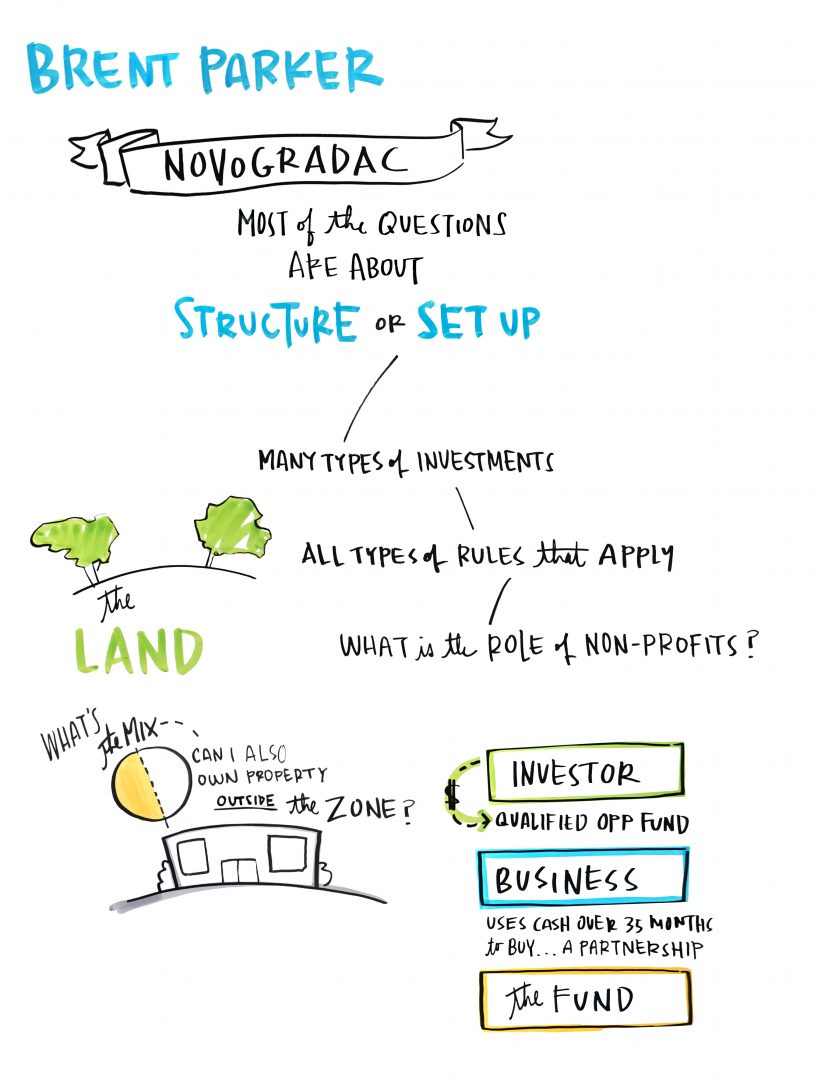 BRENT PARKER
NOVOGRADAC
MOST of the QUESTIONS
ARE ABOUT
STRUCTURE OR SET UP
MANY TYPES of INVESTMENTS
ALL TYPES of RULES that APPLY
WHAT is the ROLE of NON-PROFITS?
the
LAND
WHAT'S
the MIX--
CAN I ALSO
OWN PROPERTY
OUTSIDE the ZONE?
INVESTOR
QUALIFIED OPP FUND
BUSINESS
USES CASH OVER 35 MONTHS
to BUY... A PARTNERSHIP
the FUND